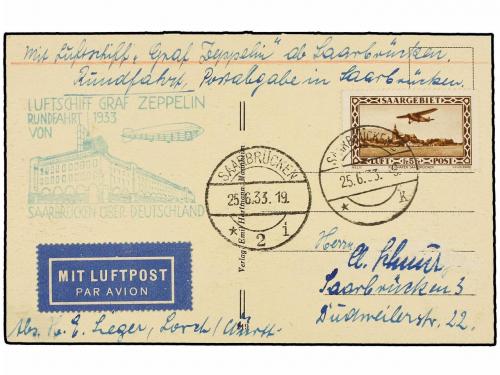 Mit Luftschiff „Graf Zeppelin“ ab Saarbrücken.
Rundfahrt, Postabgabe in Saarbrücken.
LUFTSCHIFF GRAF ZEPPELIN
RUNDFAHRT 1933
VON
SAARBRÜCKEN ÜBER DEUTSCHLAND
SAARGEBIET
LUFT POST
SAARBRÜCKEN
25.6.33.19.
* 2 i
SAARBRÜCKEN
25.6.33.
* k
Verlag: Emil Hartmann, Mannheim
MIT LUFTPOST
PAR AVION
Herrn
Saarbrücken 3
Dudweilerstr. 22.
Abs. K. E. Sieger, Lorch/Württ.